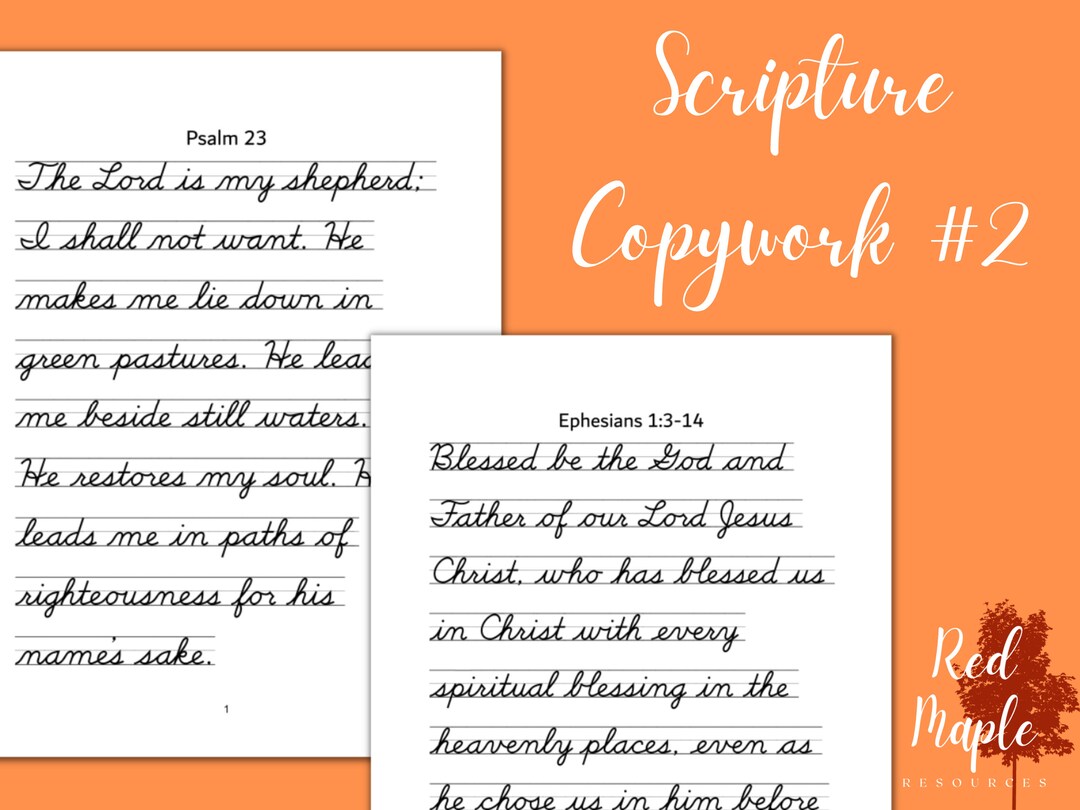 Scripture
Copywork #2
Psalm 23
The Lord is my shepherd;
I shall not want. He
makes me lie down in
green pastures. He
me beside still waters.
He restores my soul.
leads me in paths of
righteousness for his
name's sake.
1
Ephesians 1:3-14
Blessed be the God and
Father of our Lord Jesus
Christ, who has blessed us
in Christ with every
spiritual blessing in the
heavenly places, even as
he chose us in him before
Red
Maple
RESOURCES